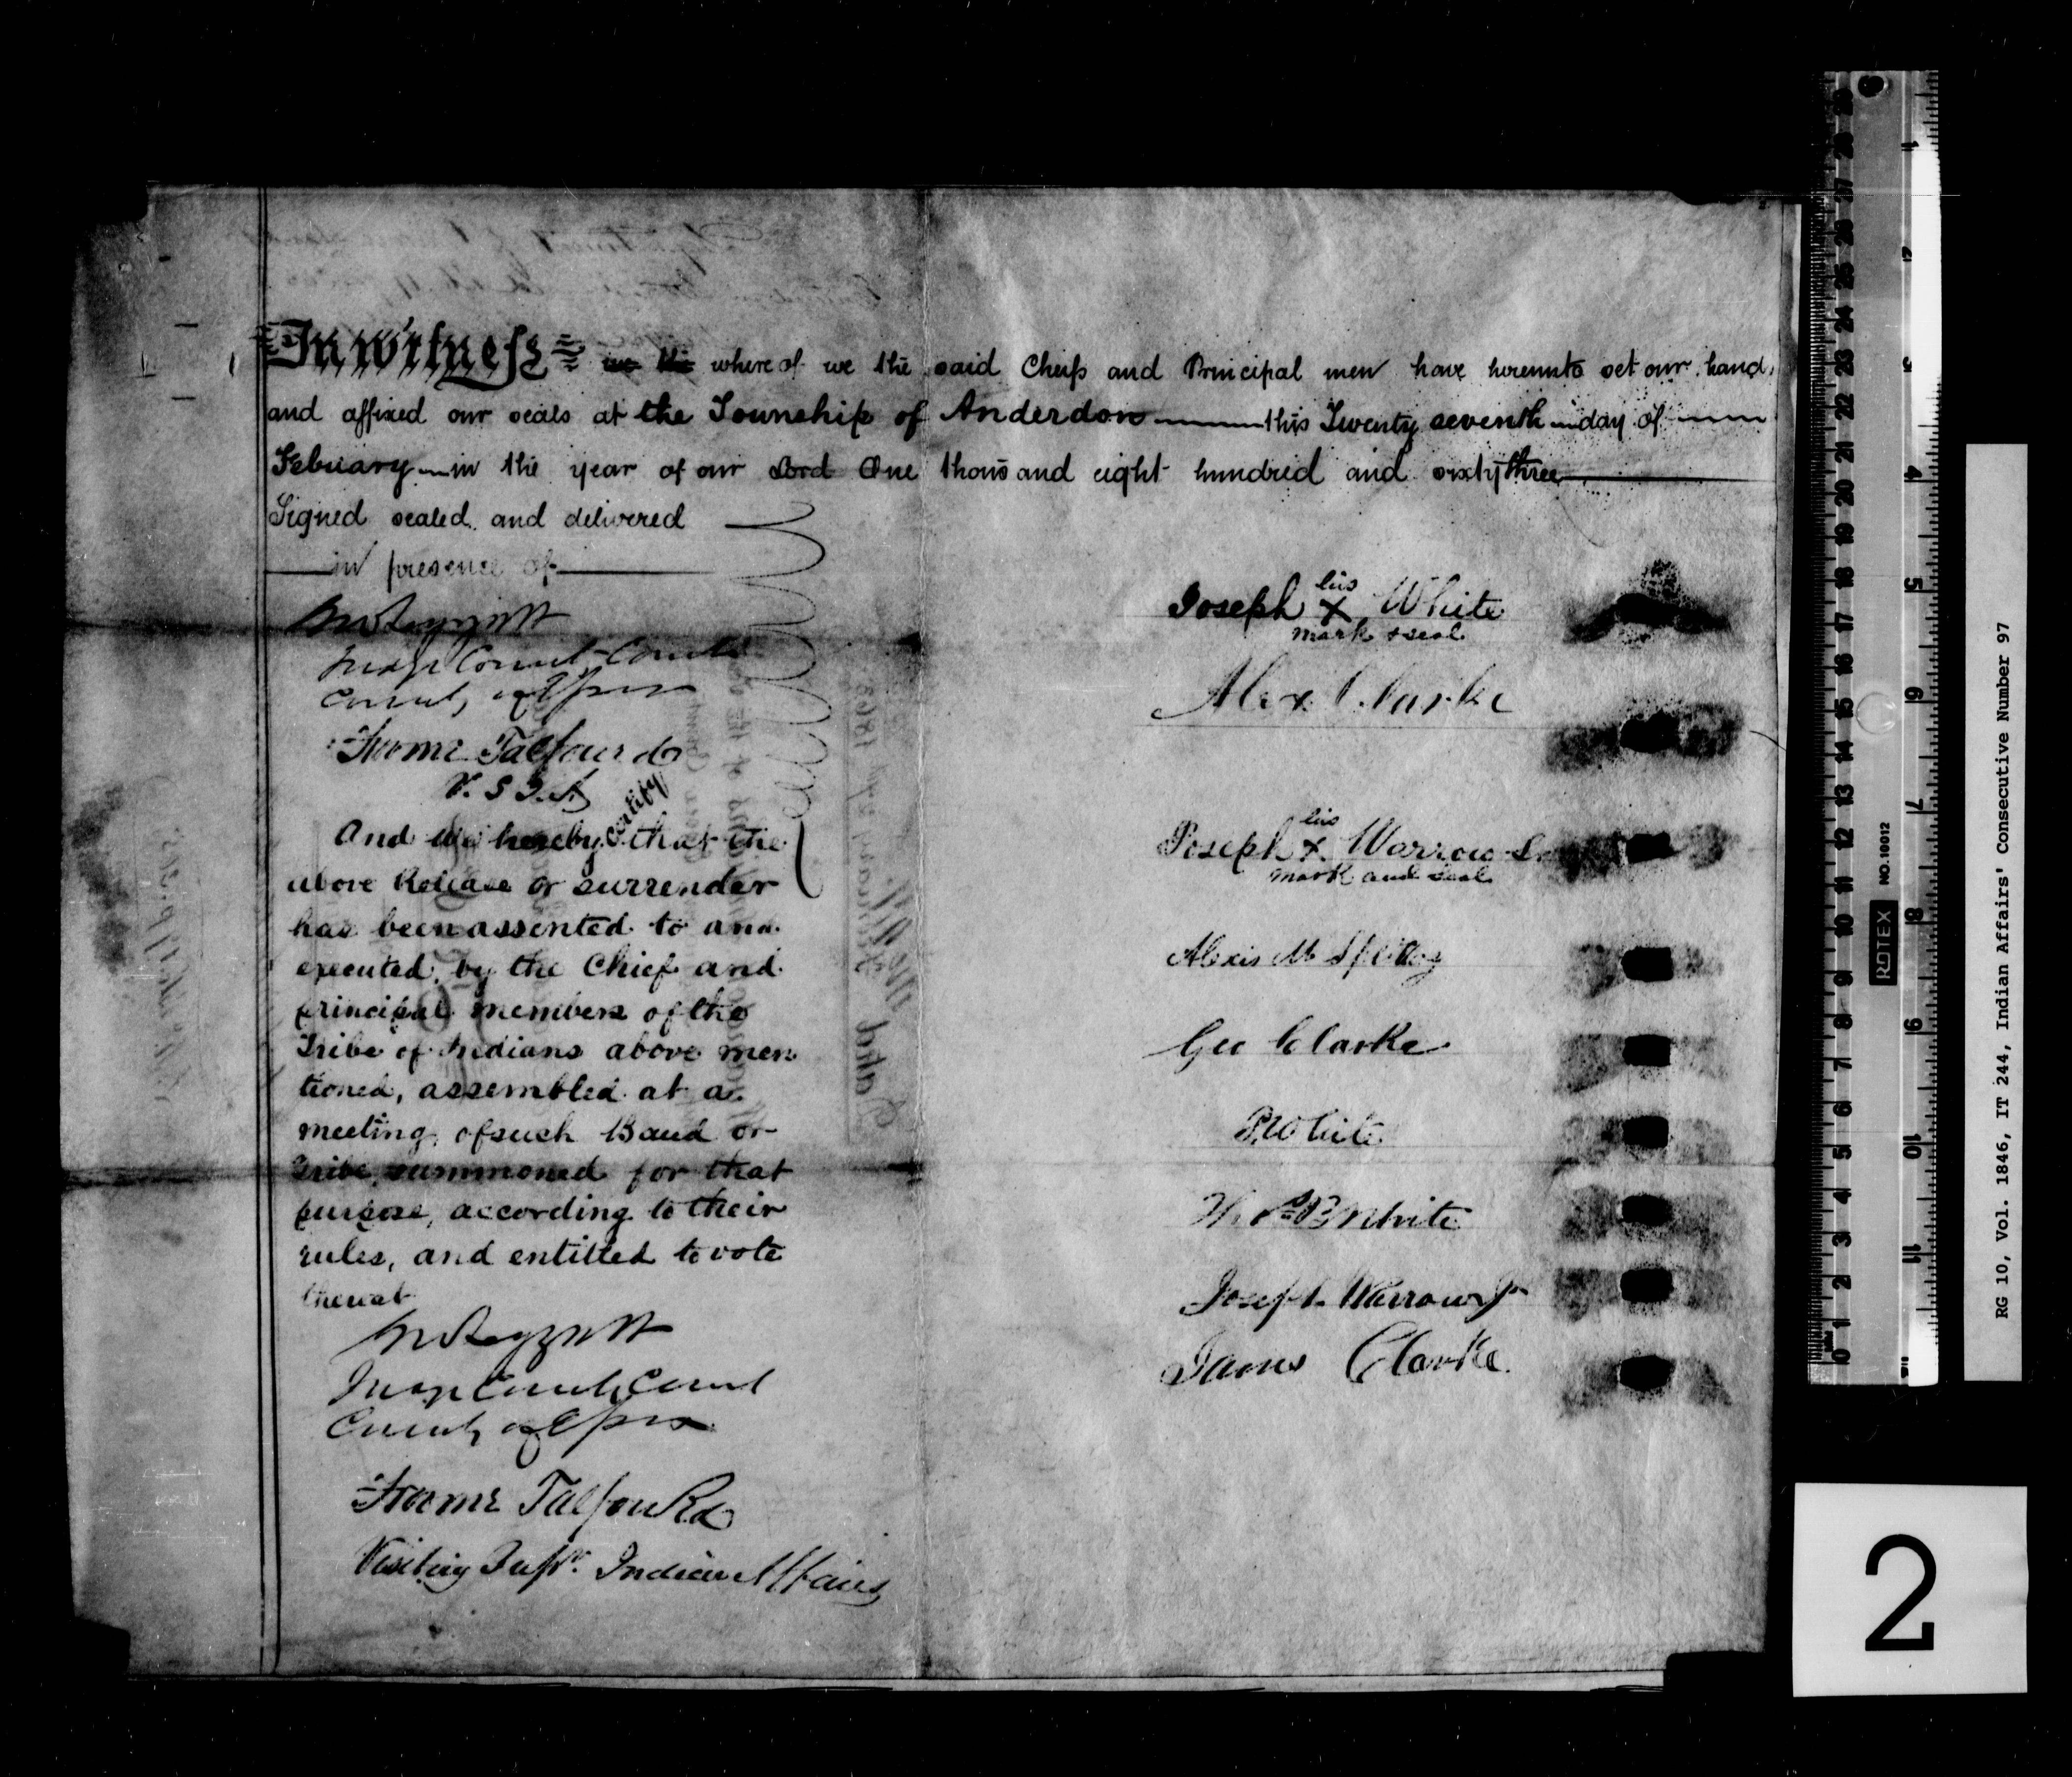 In witness whereof we the said Chiefs and Principal men have hereunto set our hand,
and affixed our seals at the Township of Anderdon this Twenty seventh day of
February in the year of our Lord One thousand eight hundred and sixty three
Signed sealed and delivered
in presence of
Judge County Court
County of Essex
Froome Talfourd
V. S I. A
And we hereby certify that the
above Release or surrender
has been assented to and
executed, by the Chief and
principal members of the
Tribe of Indians above men
tioned, assembled at a
meeting, of such Band or
Tribe, summoned for that
purpose, according to their
rules, and entitled to vote
thereat
Judge County Court
County of Essex
Froome Talfourd
Visiting Supt. Indian Affairs
Joseph his x White
mark & seal
Alex Clarke
Joseph his x Warrow Sr
mark and seal
Alexis M Splitlog
Geo Clarke
P. White
Thos B White
Joseph Warrow Jr
James Clarke
Dated February 27th 1863
ROTEX NO. 10012
RG 10, Vol. 1846, IT 244, Indian Affairs' Consecutive Number 97
2